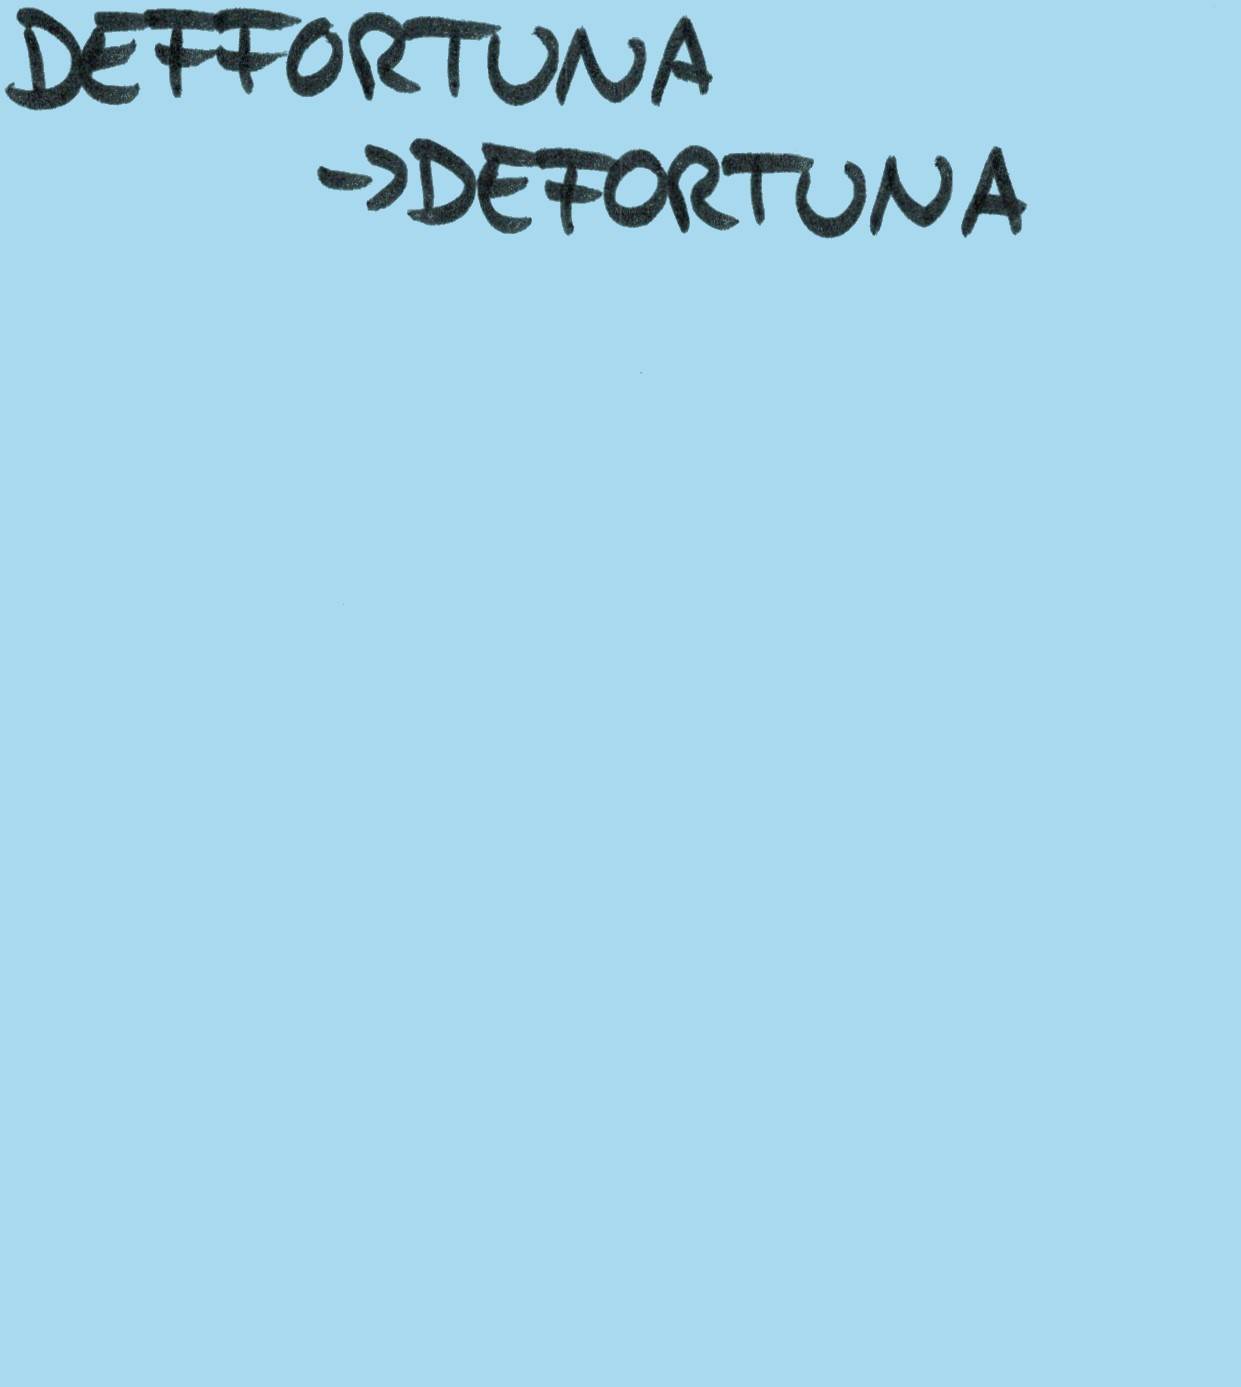 DEFFORTUNA
->DEFORTUNA